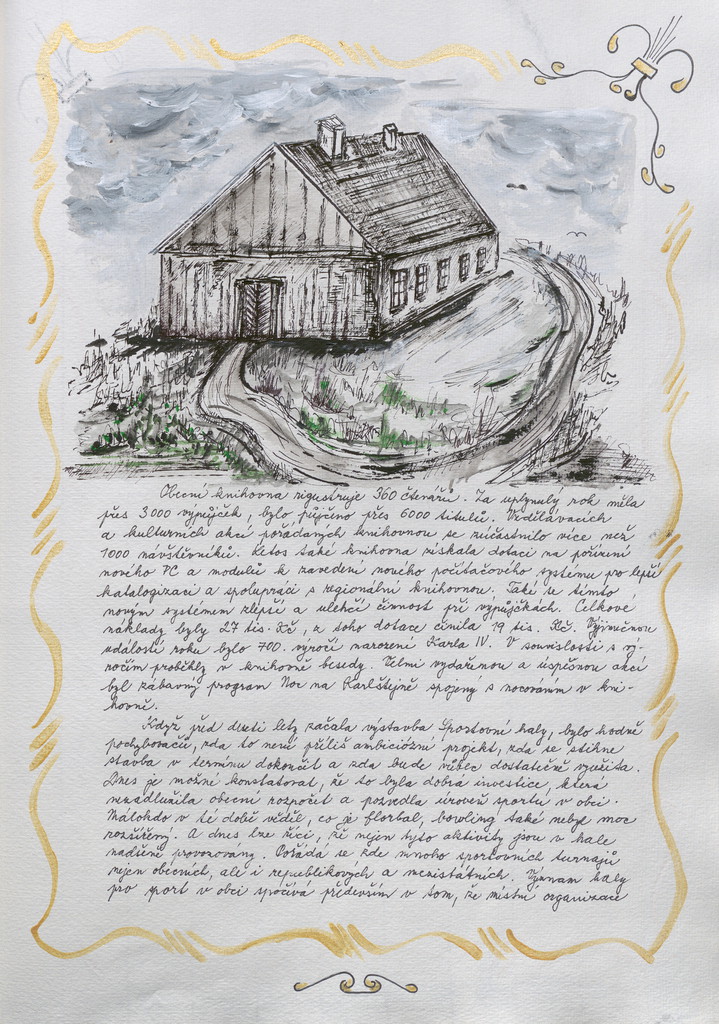 Obecní knihovna registruje 360 čtenářů. Za uplynulý rok měla
přes 3000 výpůjček, bylo půjčeno přes 6000 titulů. Vzdělávacích
a kulturních akcí pořádaných knihovnou se zúčastnilo více než
1000 návštěvníků. Letos také knihovna získala dotaci na pořízení
nového PC a modulů k zavedení nového počítačového systému pro lepší
katalogizaci a spolupráci s regionální knihovnou. Také se tímto
novým systémem zlepší a ulehčí činnost při výpůjčkách. Celkové
náklady byly 27 tis. Kč, z toho dotace činila 19 tis. Kč. Výjimečnou
událostí roku bylo 700. výročí narození Karla IV. V souvislosti s vý-
ročím proběhly v knihovně besedy. Velmi vydařenou a úspěšnou akcí
byl zábavný program Noc na Karlštejně spojený s nocováním v kni-
hovně.
Když před deseti lety začala výstavba Sportovní haly, bylo hodně
pochybovačů, zda to není příliš ambiciózní projekt, zda se stihne
stavba v termínu dokončit a zda bude vůbec dostatečně využita.
Dnes je možné konstatovat, že to byla dobrá investice, která
nezadlužila obecní rozpočet a pozvedla úroveň sportu v obci.
Málokdo v té době věděl, co je florbal, bowling také nebyl moc
rozšířený. A dnes lze říci, že nejen tyto aktivity jsou v hale
nadšeně provozovány. Pořádá se zde mnoho sportovních turnajů
nejen obecních, ale i republikových a mezistátních. Význam haly
pro sport v obci spočívá především v tom, že místní organizace